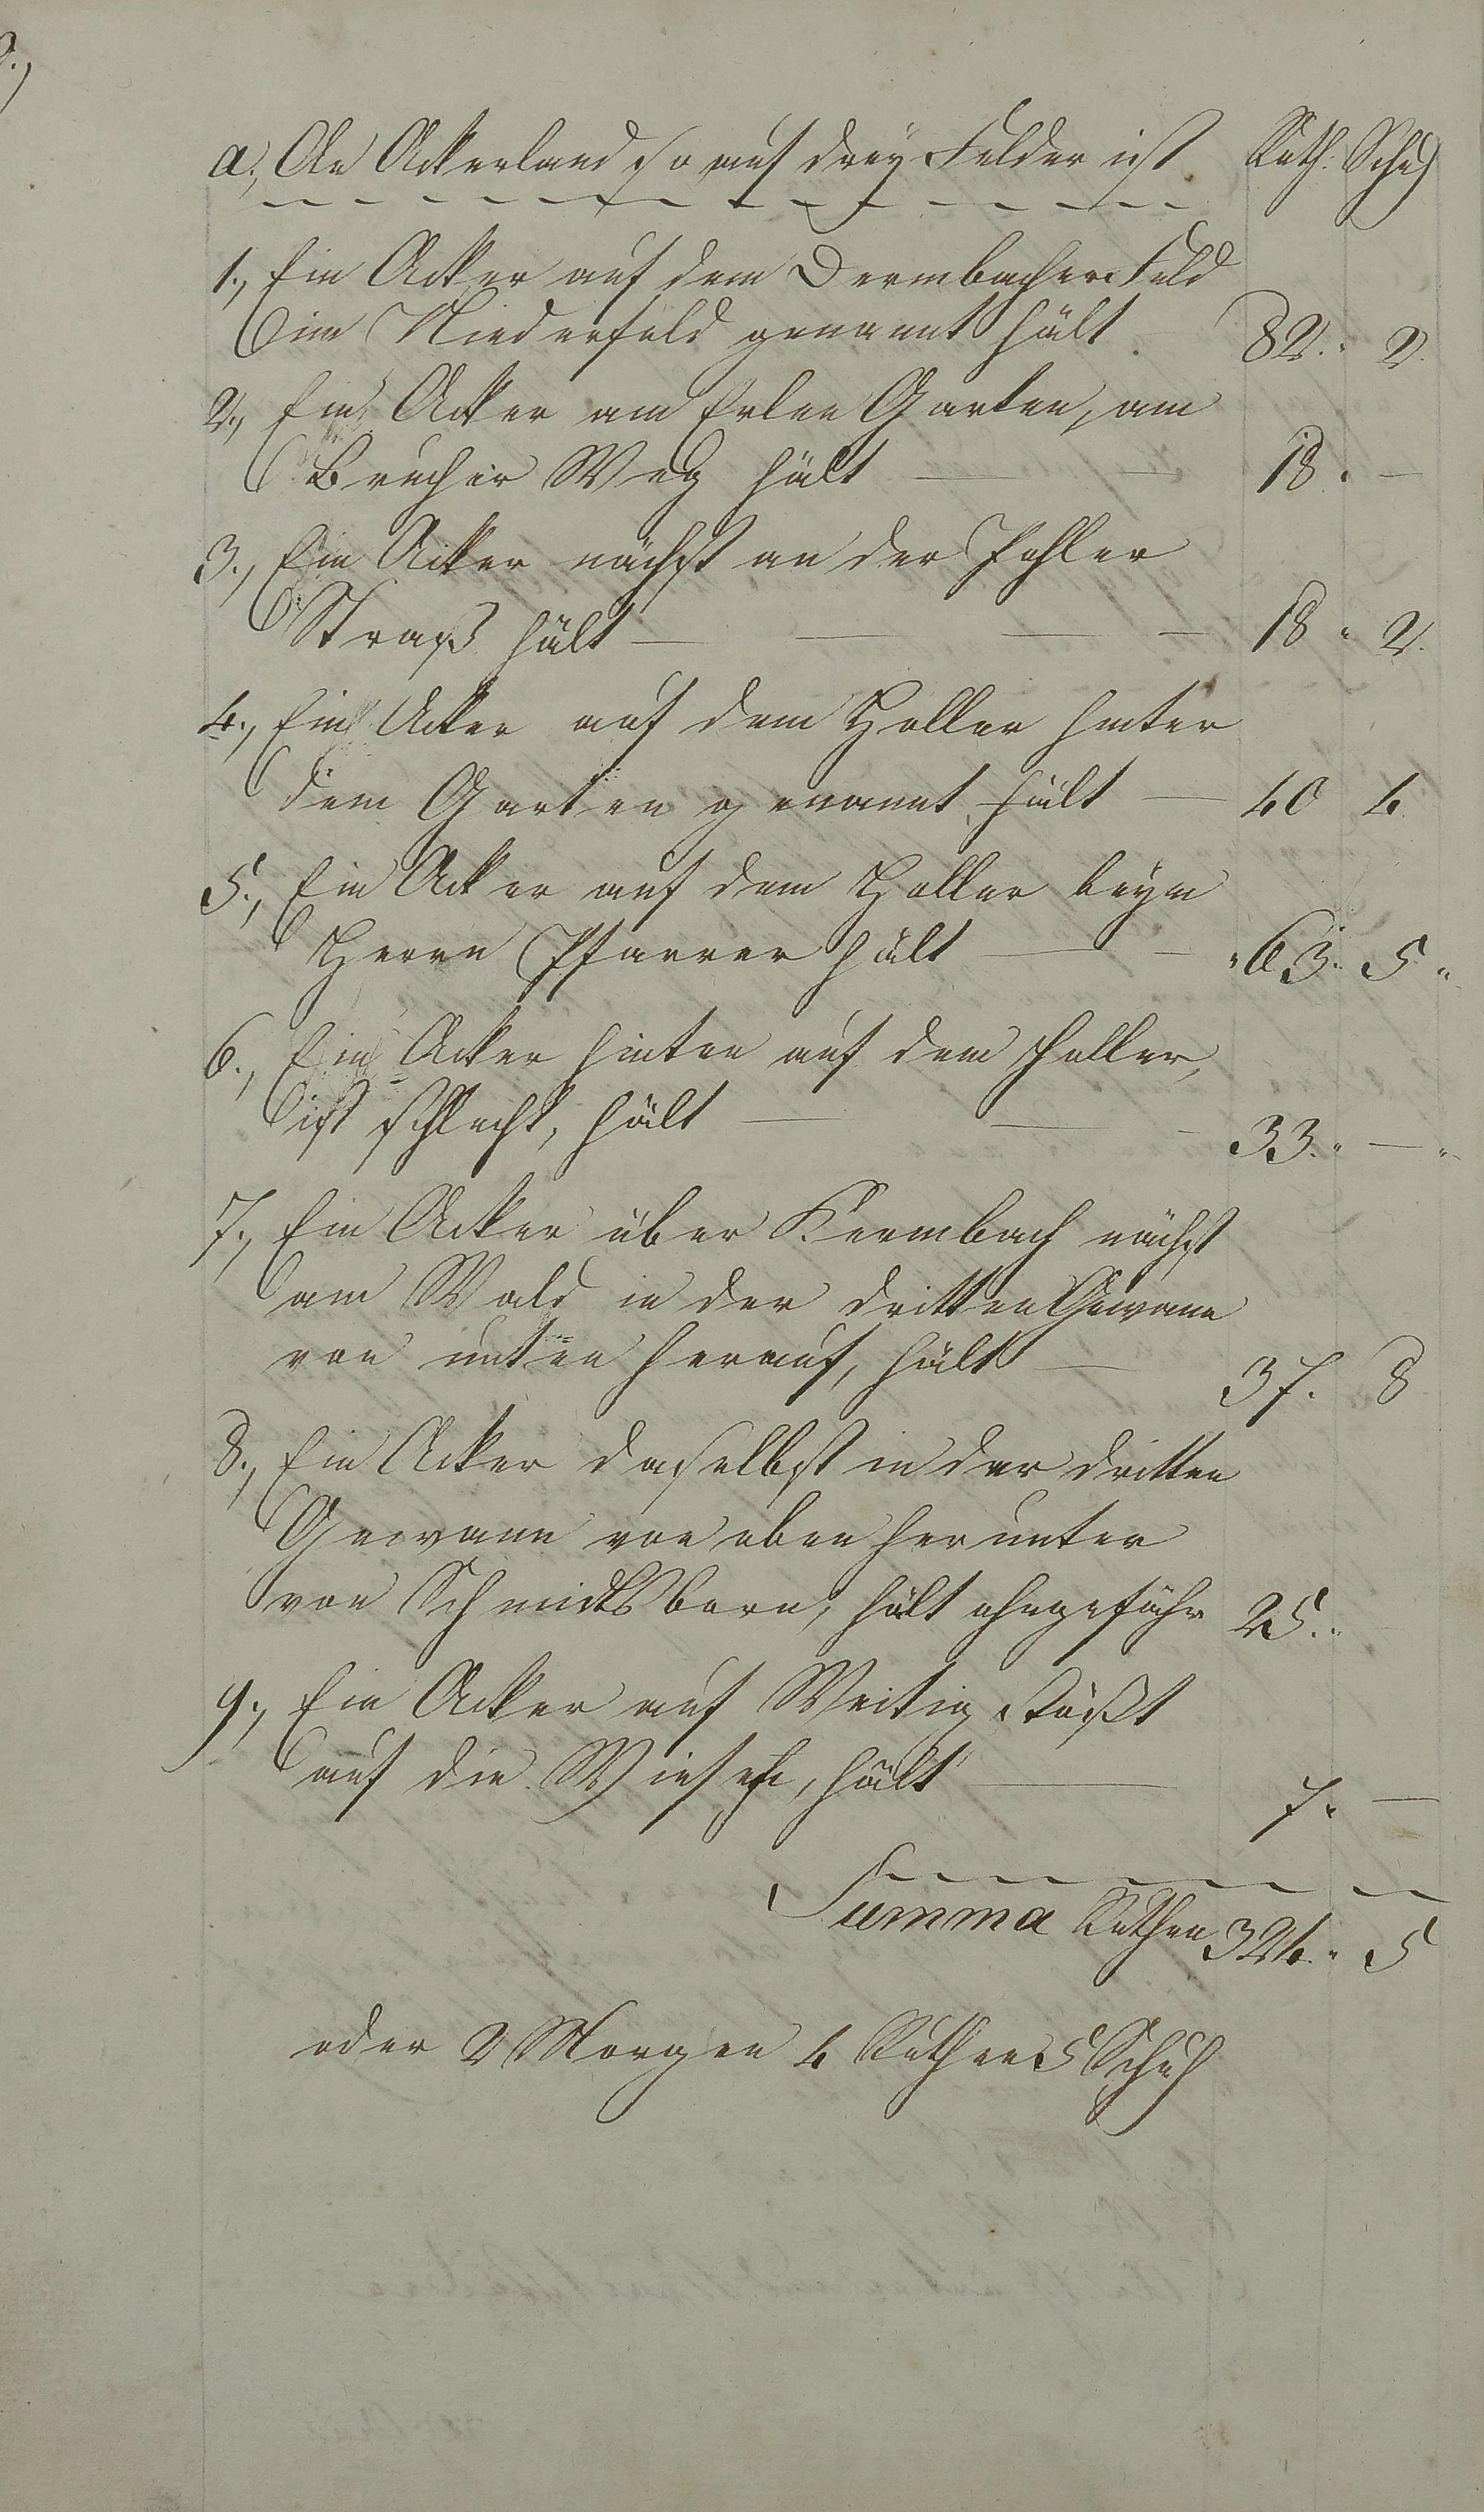 a., An Ackerland so auf drey Felder ist Ruth. Schuh
1., Ein Acker auf dem Dermbacher Feld
im Niederfeld genannt hält 82. 2.
2., Ein Acker am Erlen Garten, am
Brucher Weg hält — — 18. —
3., Ein Acker nächst an der Pohler
Straß hält — — — — 18 " 2.
4., Ein Acker auf dem Holler hinter
dem Garten genannt, hält — 40 4.
5., Ein Acker auf dem Holler beym
Herrn Pfarrer hält — — " 63. 5 "
6., Ein Acker hinten auf dem Holler,
ist schlecht, hält — — — 33. " — "
7., Ein Acker über Kermbach nächst
am Wald in der dritten Gewann
von unten herauf, hält — 37. 8
8., Ein Acker daselbst in der dritten
Gewann von oben herunter
von Schmidtsborn, hält ohngefähr 25. "
9., Ein Acker auf Weitig stößt
auf die Wiesen, hält — 7. " —
Summa Ruthen 324. " 5
oder 2 Morgen 4 Ruthen 5 Schuh